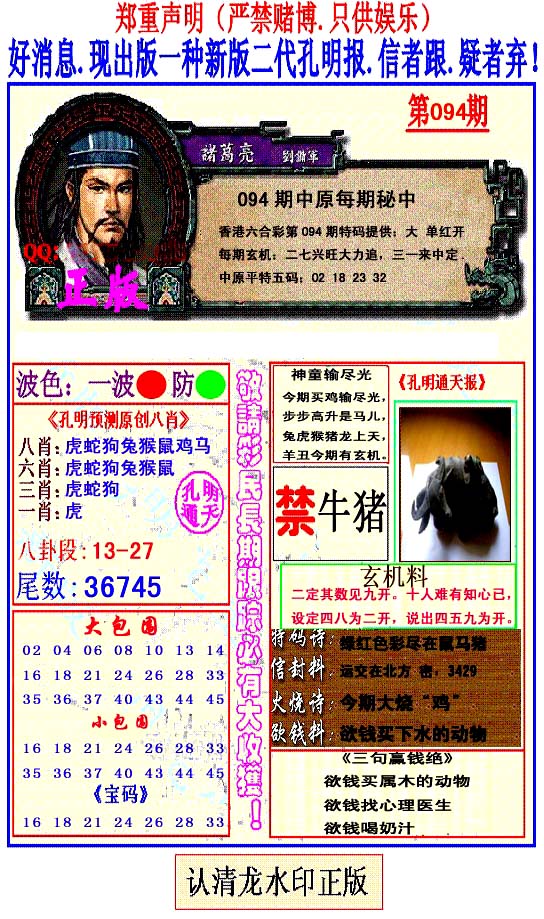 郑重声明（严禁赌博.只供娱乐）
好消息.现出版一种新版二代孔明报.信者跟.疑者弃！
第094期
諸葛亮 劉備軍
094 期中原每期秘中
香港六合彩第 094 期特码提供：大 单红开
每期玄机：二七兴旺大力追，三一来中定
中原平特五码：02 18 23 32
QQ：
正版
波色：一波 防
《孔明预测原创八肖》
八肖：虎蛇狗兔猴鼠鸡马
六肖：虎蛇狗兔猴鼠
三肖：虎蛇狗
一肖：虎
孔明
通天
八卦段：13-27
尾数：36745
大包围
02 04 06 08 10 13 14
16 18 21 24 26 28 33
35 36 37 40 43 44 45
小包围
16 18 21 24 26 28 33
35 36 37 40 43 44 45
《宝码》
16 18 21 24 26 28 33
敬請彩民長期跟踪必有大收獲！
神童输尽光
今期买鸡输尽光，
步步高升是马儿，
兔虎猴猪龙上天，
羊丑今期有玄机。
《孔明通天报》
禁牛猪
玄机料
二定其数见九开。十人难有知心己，
设定四八为二开，说出四五九为开。
特码诗：绿红色彩尽在鼠马猪
信封料：运交在北方 密，3429
火烧诗：今期大烧“鸡”
欲钱料：欲钱买下水的动物
《三句赢钱绝》
欲钱买属木的动物
欲钱找心理医生
欲钱喝奶汁
认清龙水印正版